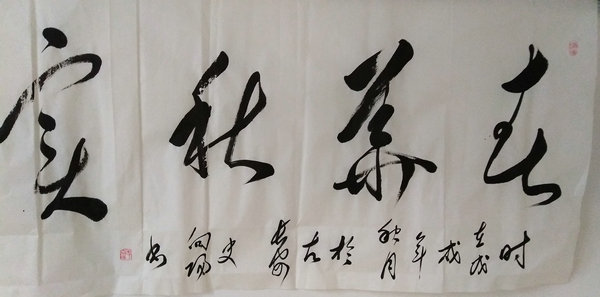 春華秋实
时在戊戌年秋月於古长安史向阳书